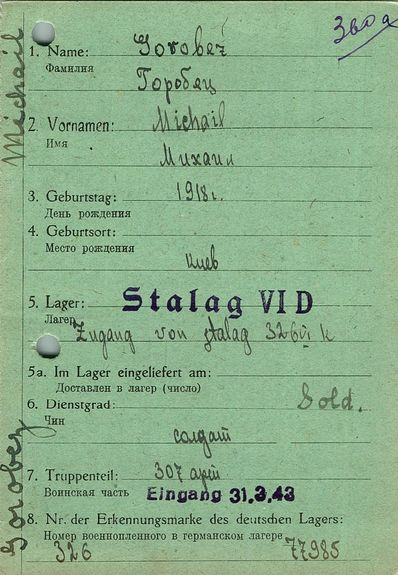 360a
Michail
1. Name: Gorobeč
Фамилия
Горобец
2. Vornamen: Michail
Имя
Михаил
3. Geburtstag: 1918 г.
День рождения
4. Geburtsort:
Место рождения
Киев
5. Lager: Stalag VI D
Лагер
Zugang von Stalag 326 VI k
5a. Im Lager eingeliefert am:
Доставлен в лагер (число)
6. Dienstgrad: Sold.
Чин
солдат
7. Truppenteil: 307 арт
Воинская часть Eingang 31.3.43
8. Nr. der Erkennungsmarke des deutschen Lagers:
Номер военнопленного в германском лагере
326 77985
Gorobez